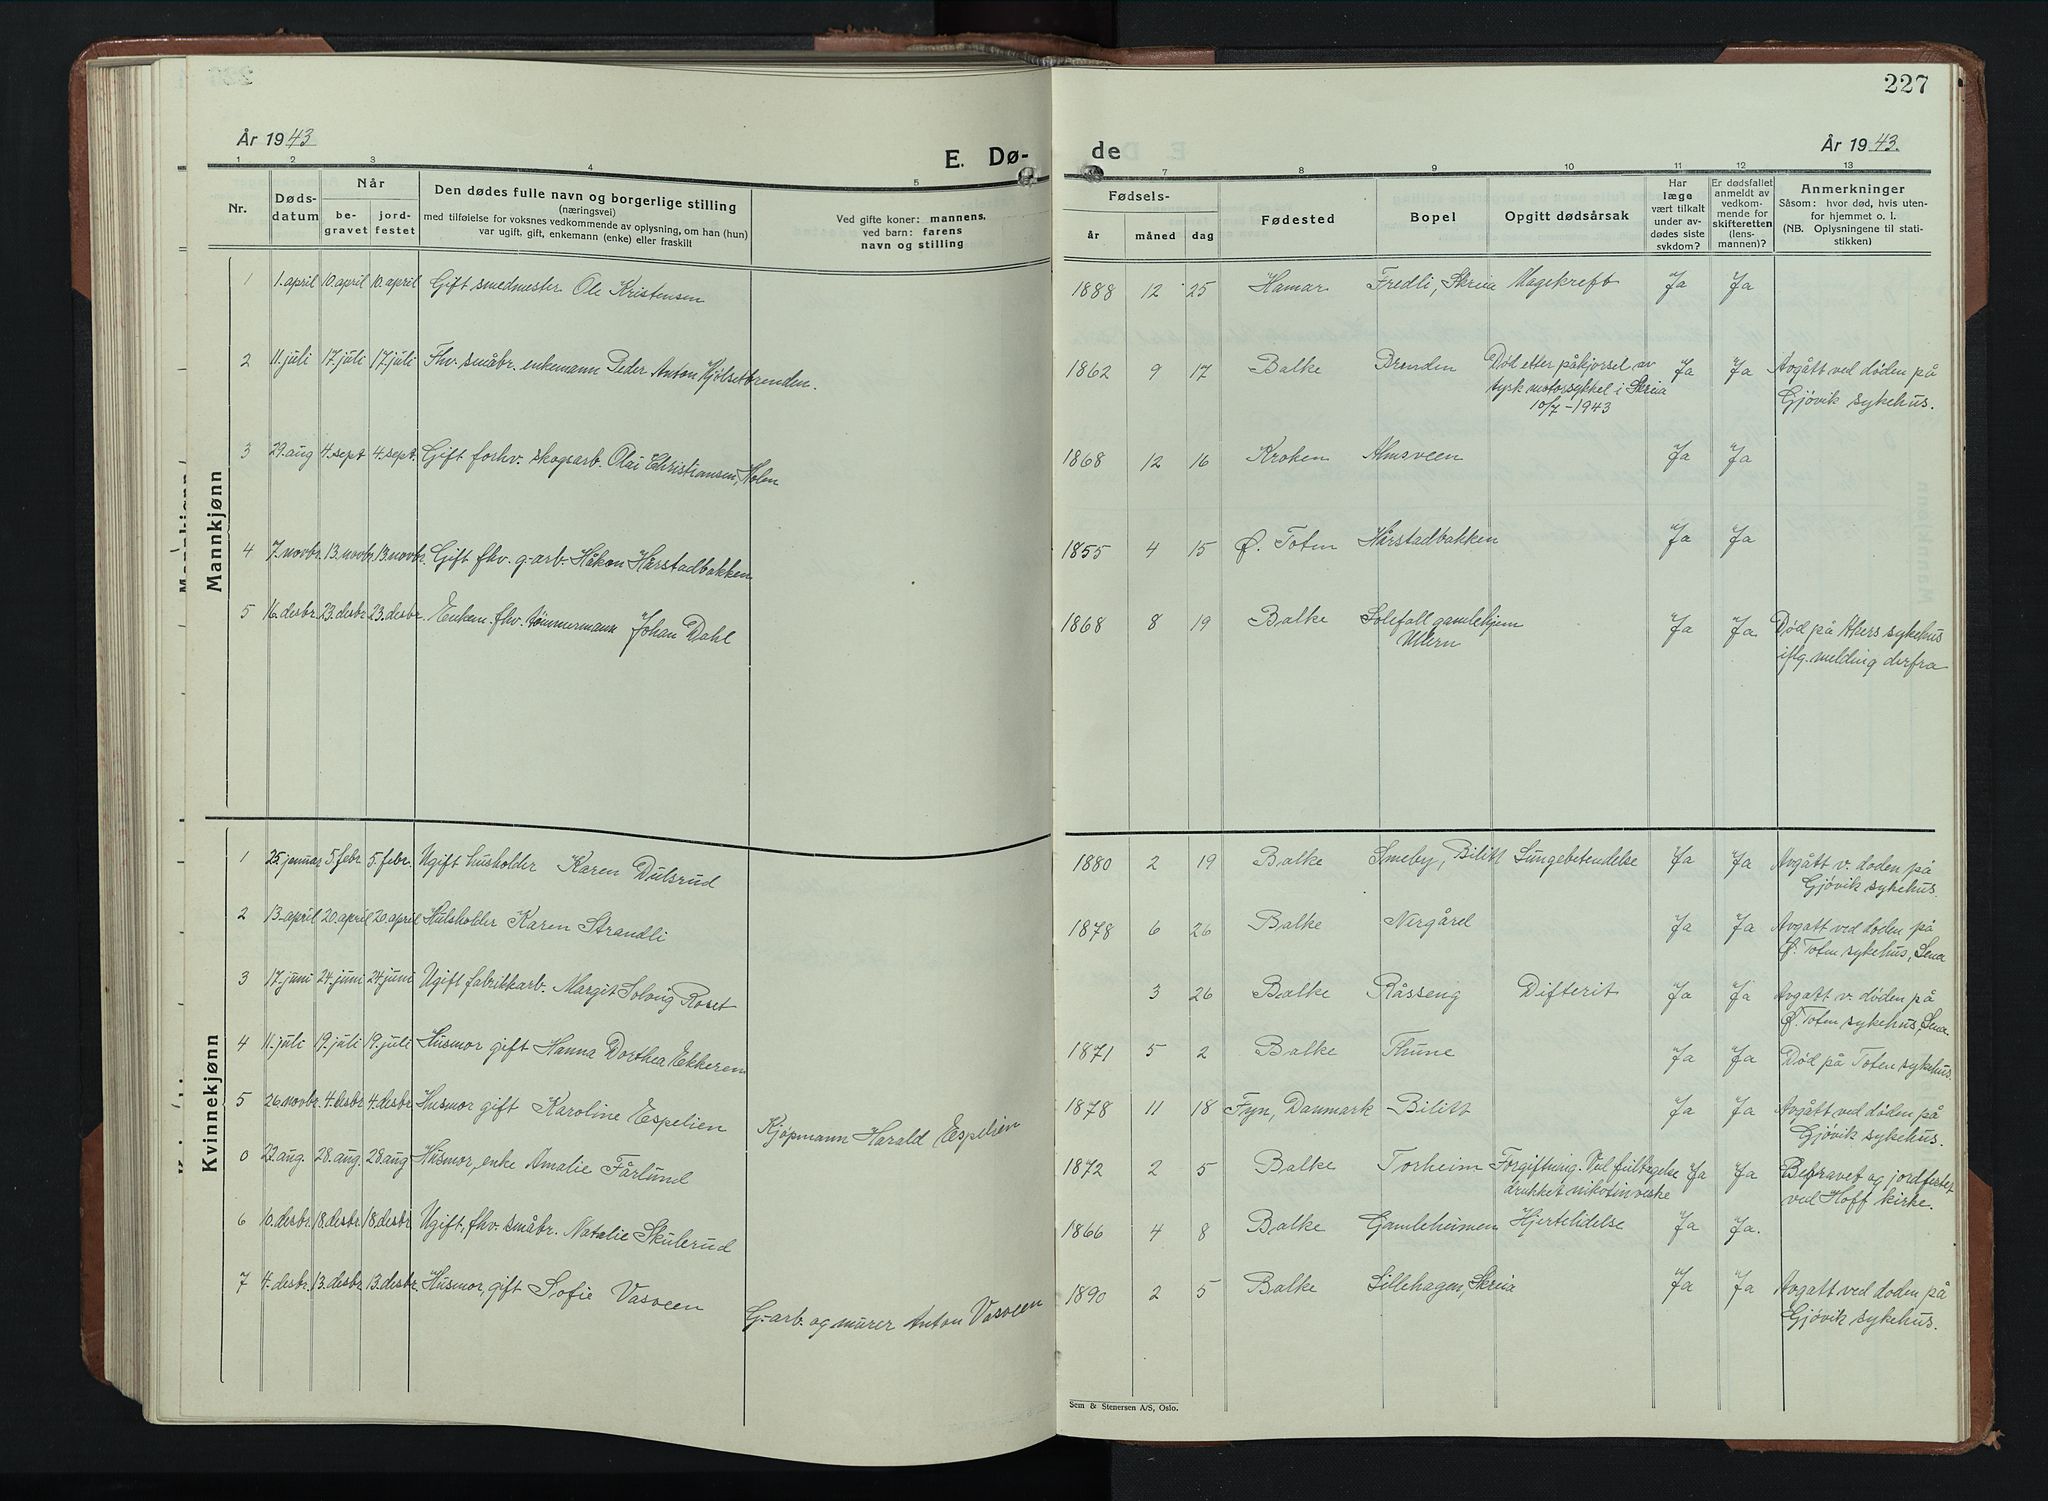 227
År 1943
E. Dø-
de
År 1943.
1 2 3 4 5 7 8 9 10 11 12 13
Nr.
Døds-
datum
Når
be-
gravet
jord-
festet
Den dødes fulle navn og borgerlige stilling
(næringsvei)
med tilføielse for voksnes vedkommende av oplysning, om han (hun)
var ugift, gift, enkemann (enke) eller fraskilt
Ved gifte koner: mannens.
ved barn: farens
navn og stilling
Fødsels-
år måned dag
Fødested
Bopel
Opgitt dødsårsak
Har
læge
vært tilkalt
under av-
dødes siste
sykdom?
Er dødsfallet
anmeldt av
vedkom-
mende for
skifteretten
(lens-
mannen)?
Anmerkninger
Såsom: hvor død, hvis uten-
for hjemmet o. l.
(NB. Oplysningene til stati-
stikken)
Mannkjønn
1 1. april 10. april 10. april Gift smedmester Ole Kristensen 1888 12 25 Hamar Fredli, Skreia Magekreft Ja Ja
2 11. juli 17. juli 17. juli Fhv. småbr. enkemann Peder Anton Kjølsetbrenden. 1862 9 17 Balke Brenden Død etter påkjørsel av Ja Ja Avgått ved døden på
tysk motorsykkel i Skreia Gjøvik sykehus.
10/7-1943
3 29. aug 4. sept 4. sept. Gift forhv. skogsarb. Olai Christiansen, Holen 1868 12 16 Kroken Almsveen Ja Ja
4 7. novbr. 13. novbr. 13. novbr. Gift fhv. g.-arb. Håkon Hårstadbakken 1855 4 15 Ø. Toten Hårstadbakken Ja Ja
5 16. desbr. 23. desbr. 23. desbr. Enkem. fhv. tømmermann Johan Dahl 1868 8 19 Balke Solefall gamlehjem Ja Ja Død på Akers sykehus
Ullern iflg. melding derfra
Kvinnekjønn
1 25. januar 5. febr 5. febr. Ugift husholder Karen Dulsrud 1880 2 19 Balke Smeby, Bilitt Lungebetendelse Ja Ja Avgått v. døden på
Gjøvik sykehus.
2 13. april 20. april 20. april Husholder Karen Strandli 1878 6 26 Balke Nergård Ja Ja Avgått ved døden på
Ø. Toten sykehus, Lena
3 17. juni 24. juni 24. juni Ugift fabrikkarb. Margit Solvig Roset 3 26 Balke Råsseng Difterit Ja Ja Avgått v. døden på
Ø. Toten sykehus, Lena
4 11. juli 19. juli 19. juli Husmor gift Hanna Dorthea Ekkeren 1871 5 2 Balke Thune Ja Ja Død på Toten sykehus.
5 26. novbr 4. desbr 4. desbr Husmor gift Karoline Espelien Kjøpmann Harald Espelien 1878 11 18 Fyn, Danmark Bilitt Ja Ja Avgått ved døden på
Gjøvik sykehus.
0 23. aug. 28. aug. 28. aug Husmor, enke Amalie Fårlund 1872 2 5 Balke Torheim Forgiftning. Ved feiltagelse Ja Ja Begravet og jordfestet
drukket nikotinveske ved Hoff kirke.
6 10. desbr. 18. desbr 18. desbr Ugift, fhv. småbr. Natalie Skulerud 1866 4 8 Balke Gamleheimen Hjertelidelse Ja Ja.
7 4. desbr. 13. desbr. 13. desbr. Husmor, gift Sofie Vasveen G.-arb. og murer Anton Vasveen 1890 2 5 Balke Lillehagen, Skreia Ja Ja Avgått ved døden på
Gjøvik sykehus.
Sem & Stenersen A/S, Oslo.